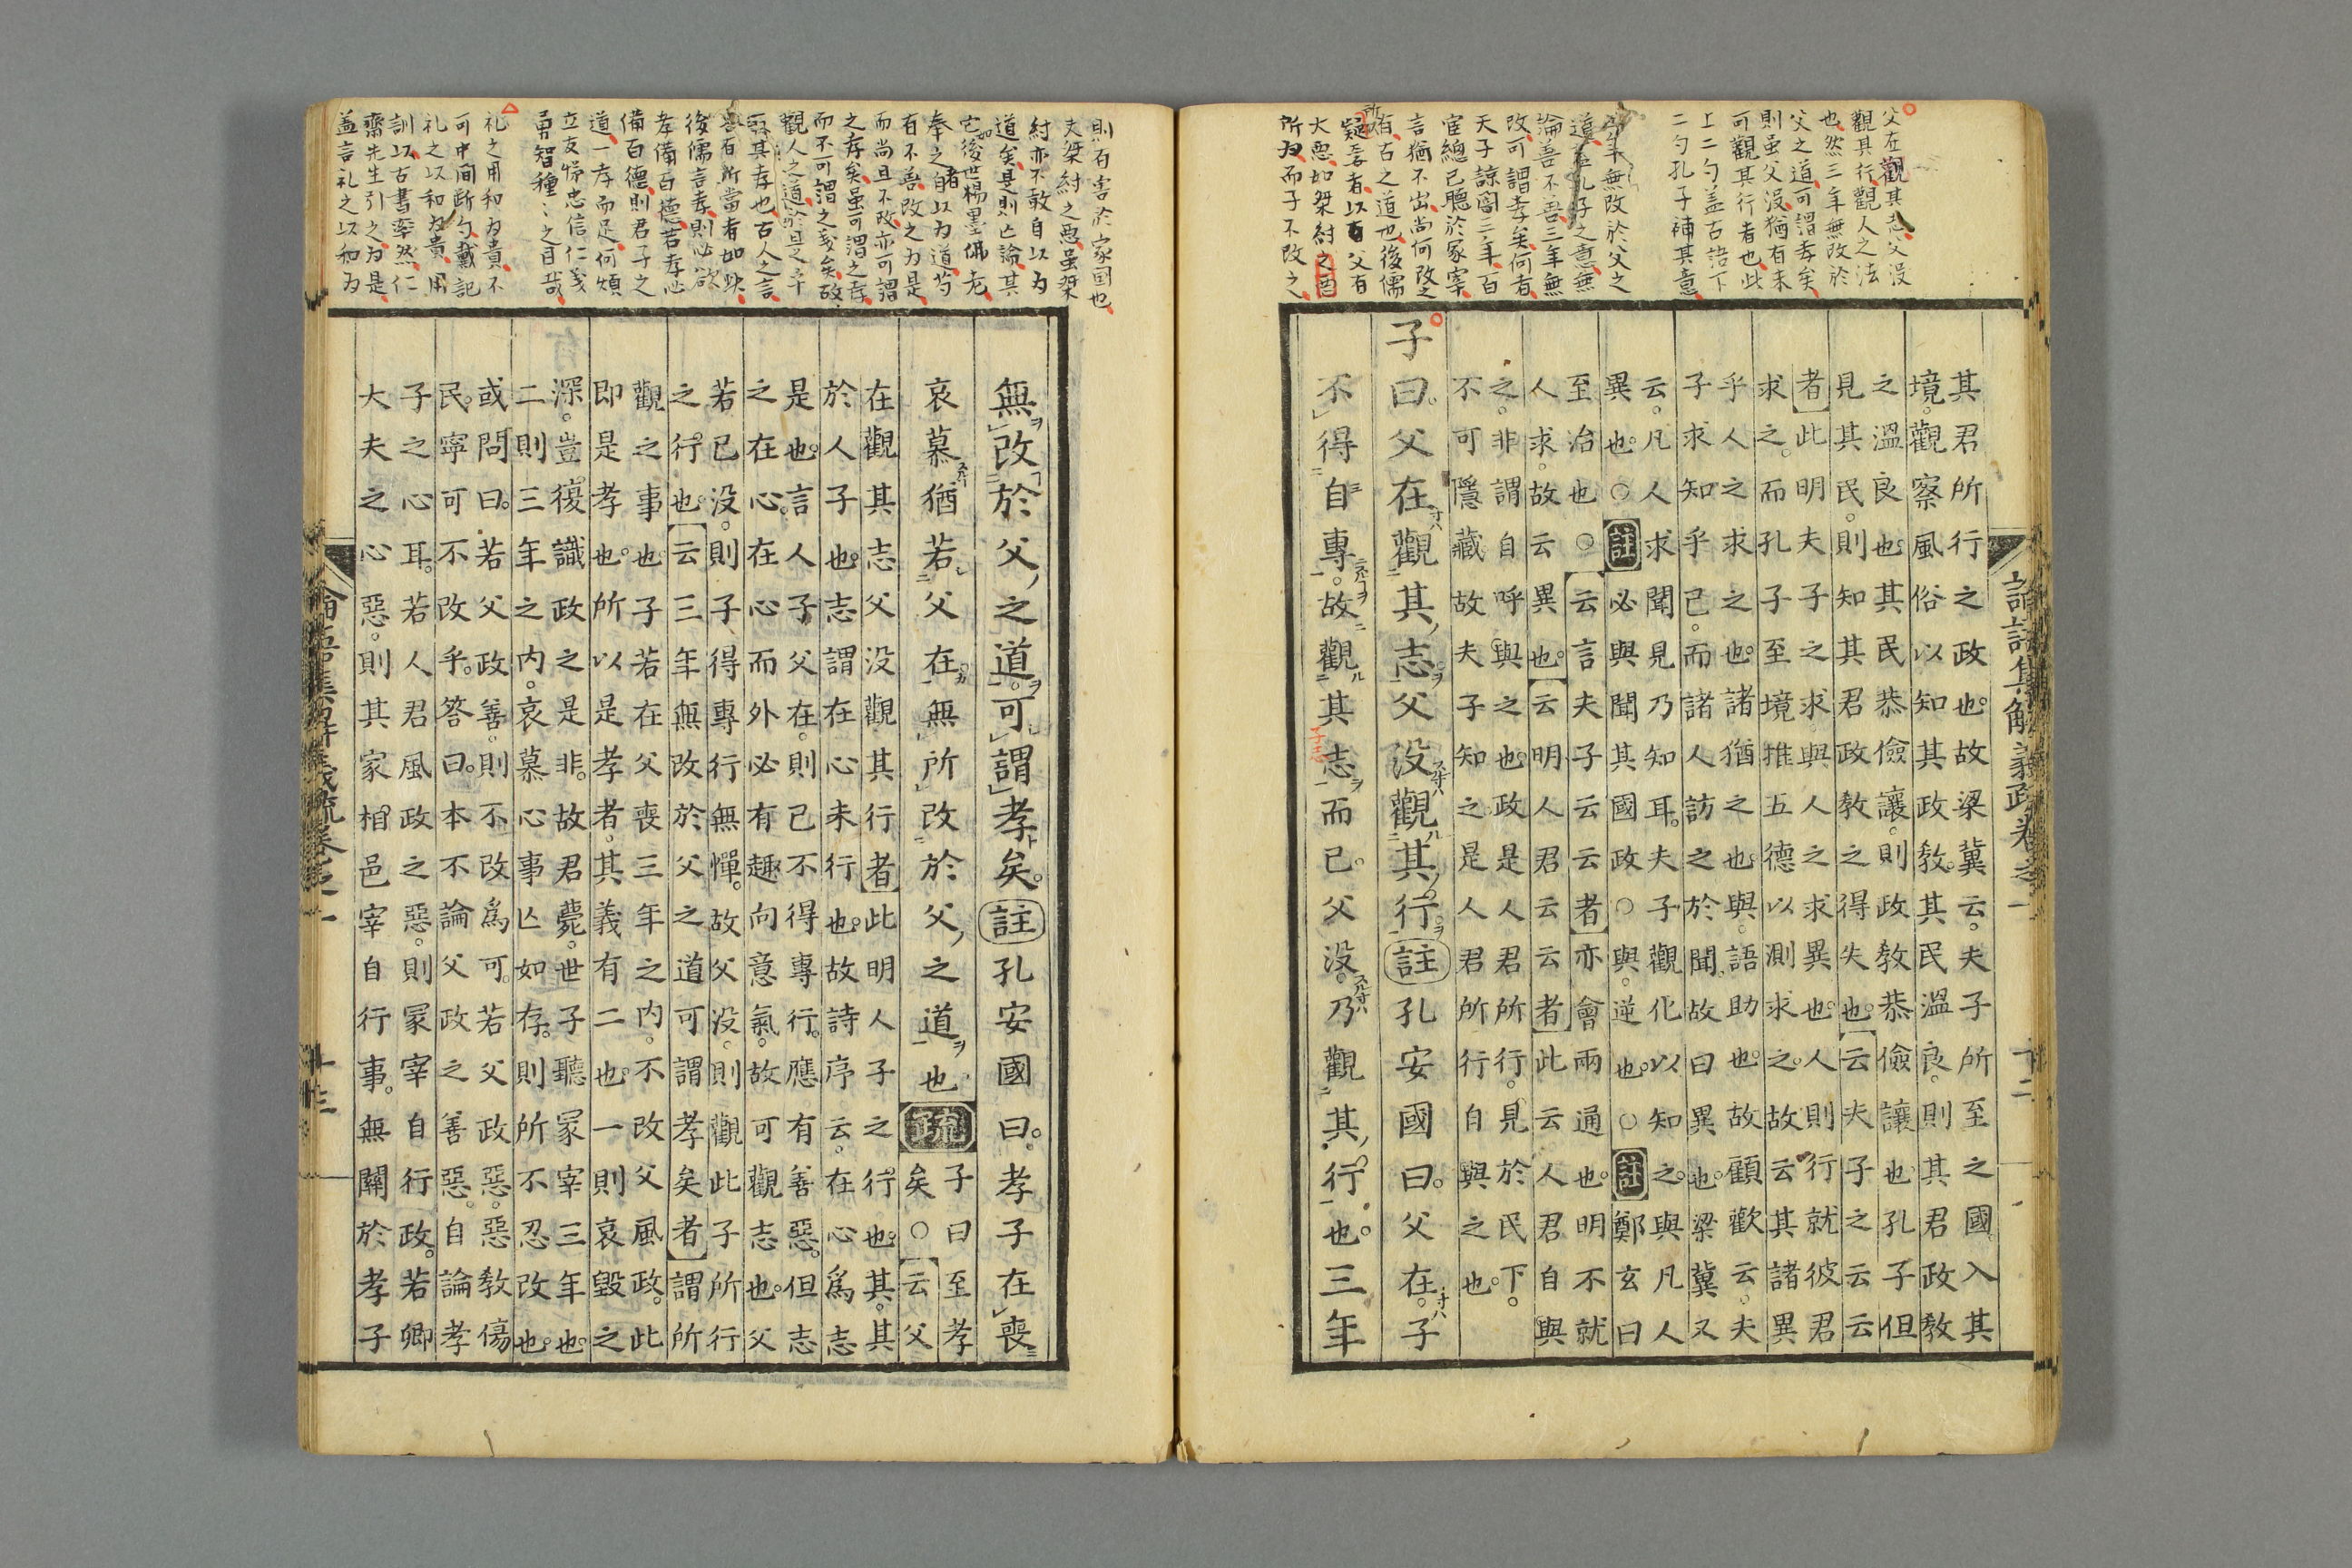 父在觀其志父没
觀其行觀人之法
也然三年無改於
父之道可謂孝矣
則虽父没猶有未
可觀其行者也此
上二勺盖古語下
二勺孔子補其意
三年無改於父之
道盖孔子之意無
論善不善三年無
改可謂孝矣何者
天子諒闇三年百
官總己聽於冢宰
言猶不出尚何改之
有古之道也後儒
疑焉者以為父有
大惡如桀紂之
所为而子不改之
其君所行之政也。故梁冀云。夫子所至之國入其
境。觀察風俗以知其政教。其民溫良。則其君政教
之溫良也。其民恭儉讓。則政教恭儉讓也。孔子但
見其民。則知其君政教之得失也。云夫子之云云
者此明夫子之求與人之求異也。人則行就彼君
求之。而孔子至境推五德以測求之。故云其諸異
乎人之求之也。諸猶之也。與。語助也。故顧歡云。夫
子求知乎己。而諸人訪之於聞。故曰異也。梁冀又
云。凡人求聞見乃知耳。夫子觀化以知之。與凡人
異也。○註必與聞其國政○與。逆也。○註鄭玄曰
至治也○云言夫子云云者亦會兩通也。明不就
人求。故云異也。云明人君云云者此云人君自與
之。非謂自呼與之也。政是人君所行。見於民下。
不可隱藏故夫子知之是人君所行自與之也。
子曰。父在觀其志。父没觀其行。註孔安國曰。父在。子
不得自專。故觀其志而已。父没。乃觀其行也。三年
則有害於家国也
夫桀紂之惡虽桀
紂亦不敢自以为
道矣是則亾論其
它如後世楊墨佛老
奉之者自以为道苟
有不善改之为是
而尚且不改亦可謂
之孝矣虽可謂之孝
而不可謂之義矣故
觀人之道於是乎
取其孝也古人之言
有所當者如此
後儒言孝則必欲
孝備百德若孝必
備百德則君子之
道一孝而足何煩
立友悌忠信仁義
勇智種〻之目哉
礼之用和为貴不
可中间断勺戴記
礼之以和为貴用
訓以古書率然仁
齋先生引之为是
盖言礼之以和为
無改於父之道。可謂孝矣。註孔安國曰。孝子在喪
哀慕猶若父在無所改於父之道也疏子曰至孝
矣○云父
在觀其志父没觀其行者此明人子之行也。其。其
於人子也。志謂在心未行也。故詩序云。在心爲志
是也。言人子父在。則己不得專行。應有善惡。但志
之在心。在心而外必有趣向意氣。故可觀志也。父
若已没。則子得專行無憚。故父没。則觀此子所行
之行也。云三年無改於父之道可謂孝矣者謂所
觀之事也子若在父喪三年之内。不改父風政。此
即是孝也。所以是孝者。其義有二也。一則哀毀之
深。豈復識政之是非。故君薨。世子聽冢宰三年也。
二則三年之内。哀慕心事亾如存。則所不忍改也。
或問曰。若父政善。則不改爲可。若父政惡。惡教傷
民。寧可不改乎。答曰。本不論父政之善惡。自論孝
子之心耳。若人君風政之惡。則冢宰自行政。若卿
大夫之心惡。則其家相邑宰自行事。無關於孝子
論語集解義疏卷之一
十二
論語集解義疏卷之一
十三